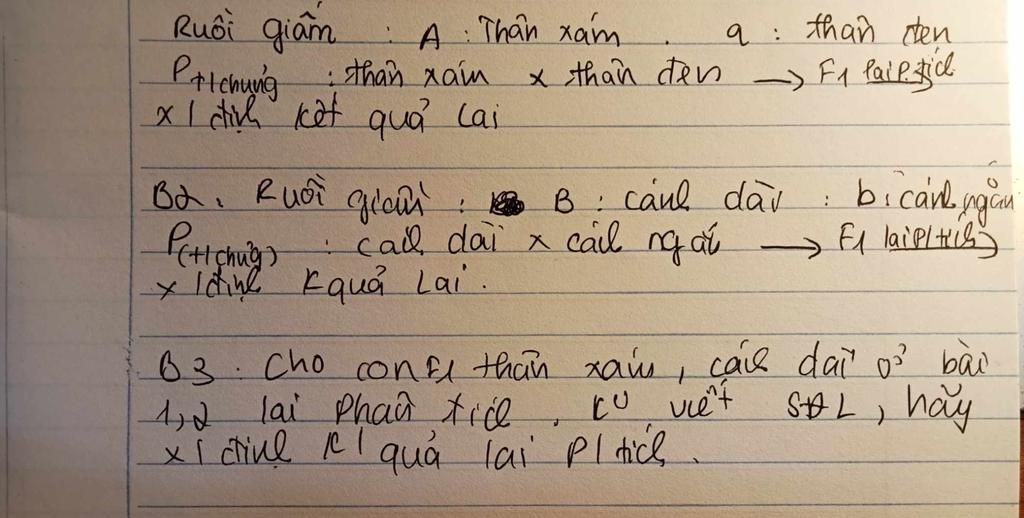 Ruồi giấm : A : Thân xám . a : thân đen
P t/chủng : thân xám x thân đen → F1 lai P.tích
x/định kết quả lai
B2. Ruồi giấm : B : cánh dài : b : cánh ngắn
P(t/chủng) : cánh dài x cánh ngắn → F1 lai P/tích
x/định Kquả lai.
B3. Cho con F1 thân xám, cánh dài ở bài
1,2 lai phân tích, viết SĐL, hãy
x/định K/quả lai P/tích.